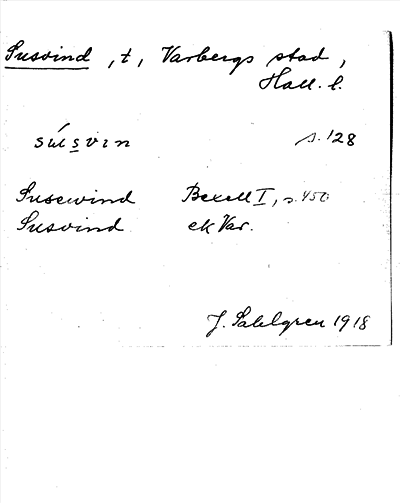 Susvind, t, Varbergs stad,
Hall. l.
súsvin s. 128
Susewind Bexell I, s. 450
Susvind ek Var.
J. Sahlgren 1918